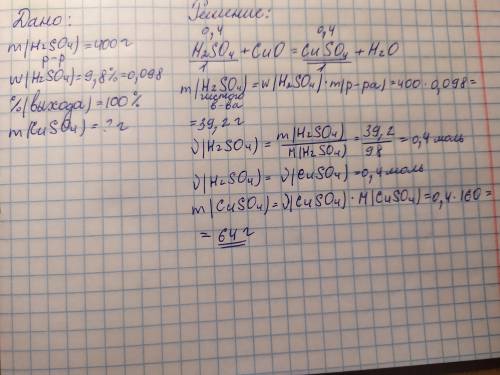 Дано:
m(H2SO4) = 400 г
р-р
w(H2SO4) = 9,8% = 0,098
%(выхода) = 100%
m(CuSO4) = ? г
Решение:
0,4 0,4
H2SO4 + CuO = CuSO4 + H2O
1 1
m(H2SO4) = w(H2SO4) · m(р-ра) = 400 · 0,098 =
чистого
в-ва
= 39,2 г
ν(H2SO4) = m(H2SO4)/M(H2SO4) = 39,2/98 = 0,4 моль
ν(H2SO4) = ν(CuSO4) = 0,4 моль
m(CuSO4) = ν(CuSO4) · M(CuSO4) = 0,4 · 160 =
= 64 г